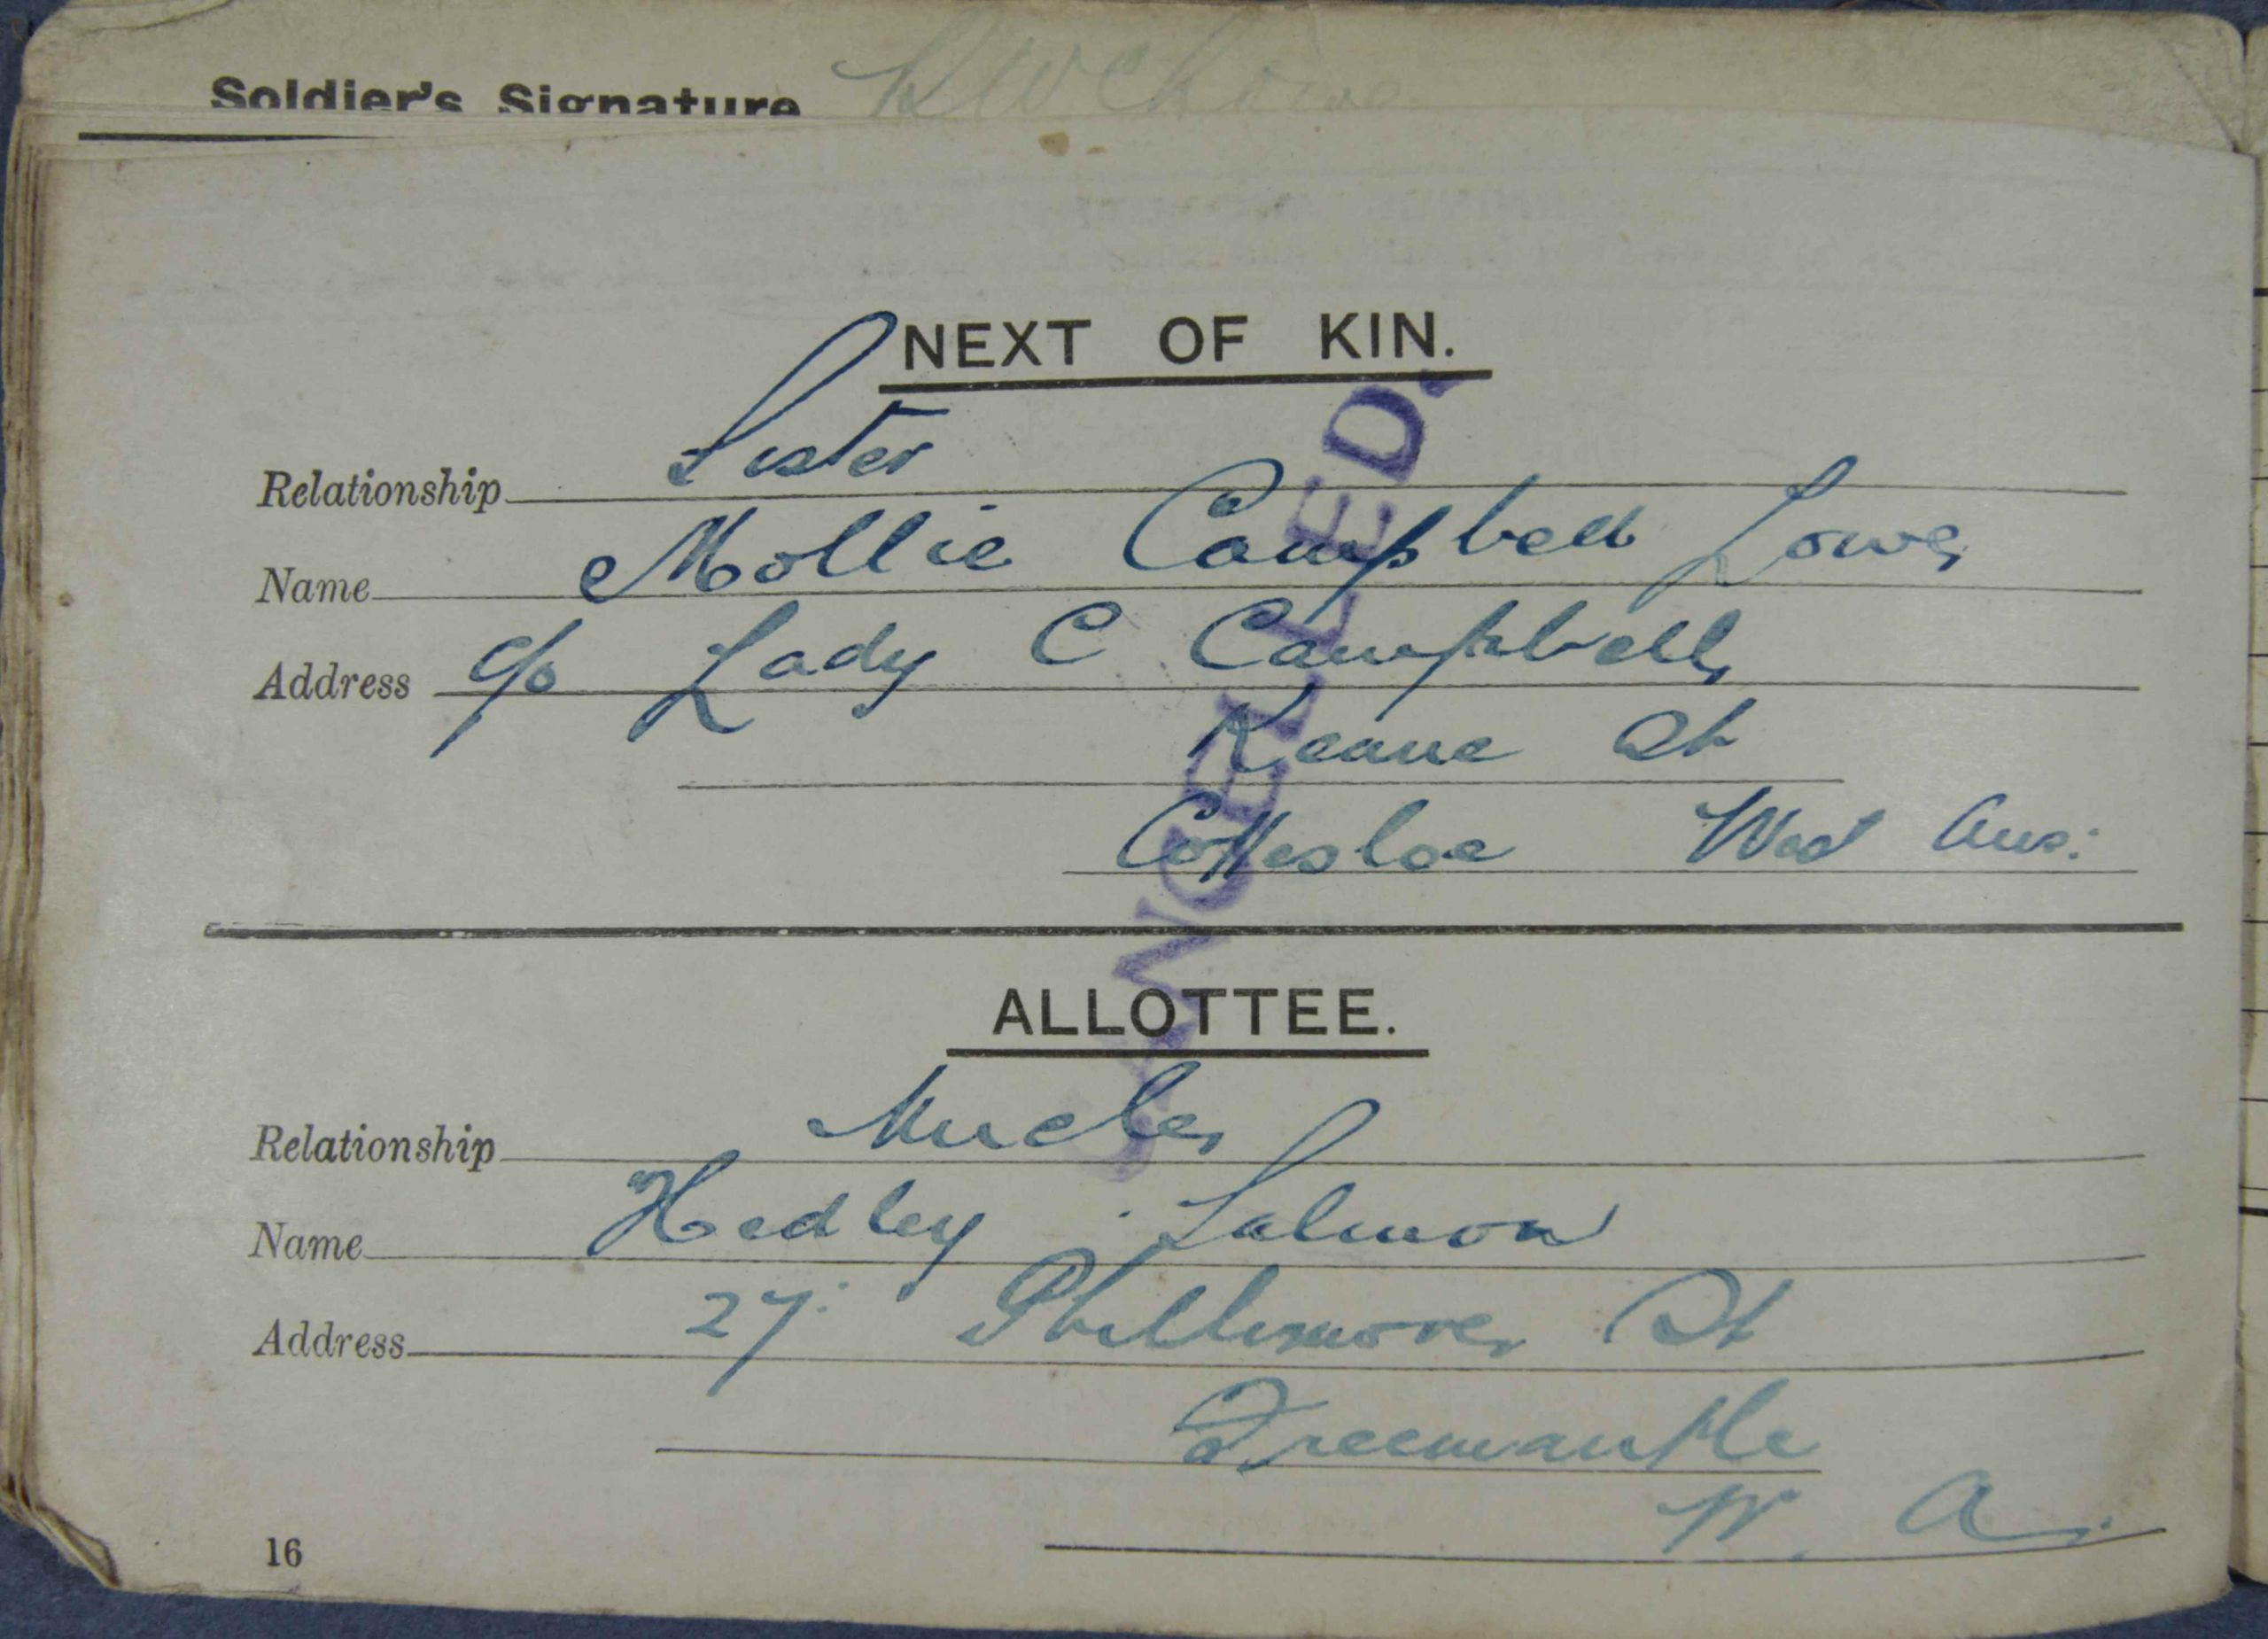 Soldier's Signature
NEXT OF KIN.
Relationship Sister
Name Mollie Campbell Lowe
Address c/o Lady C Campbell,
Keane St
Cottesloe West Aus:
CANCELLED.
ALLOTTEE.
Relationship Uncle,
Name Hedley Salmon
Address 27: Phillimore, St
Freemantle
W. A.
16